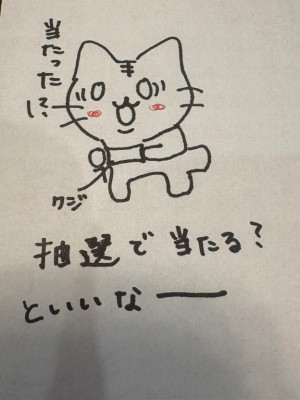 当たった
!?
クジ
抽選で当たる?
といいなー